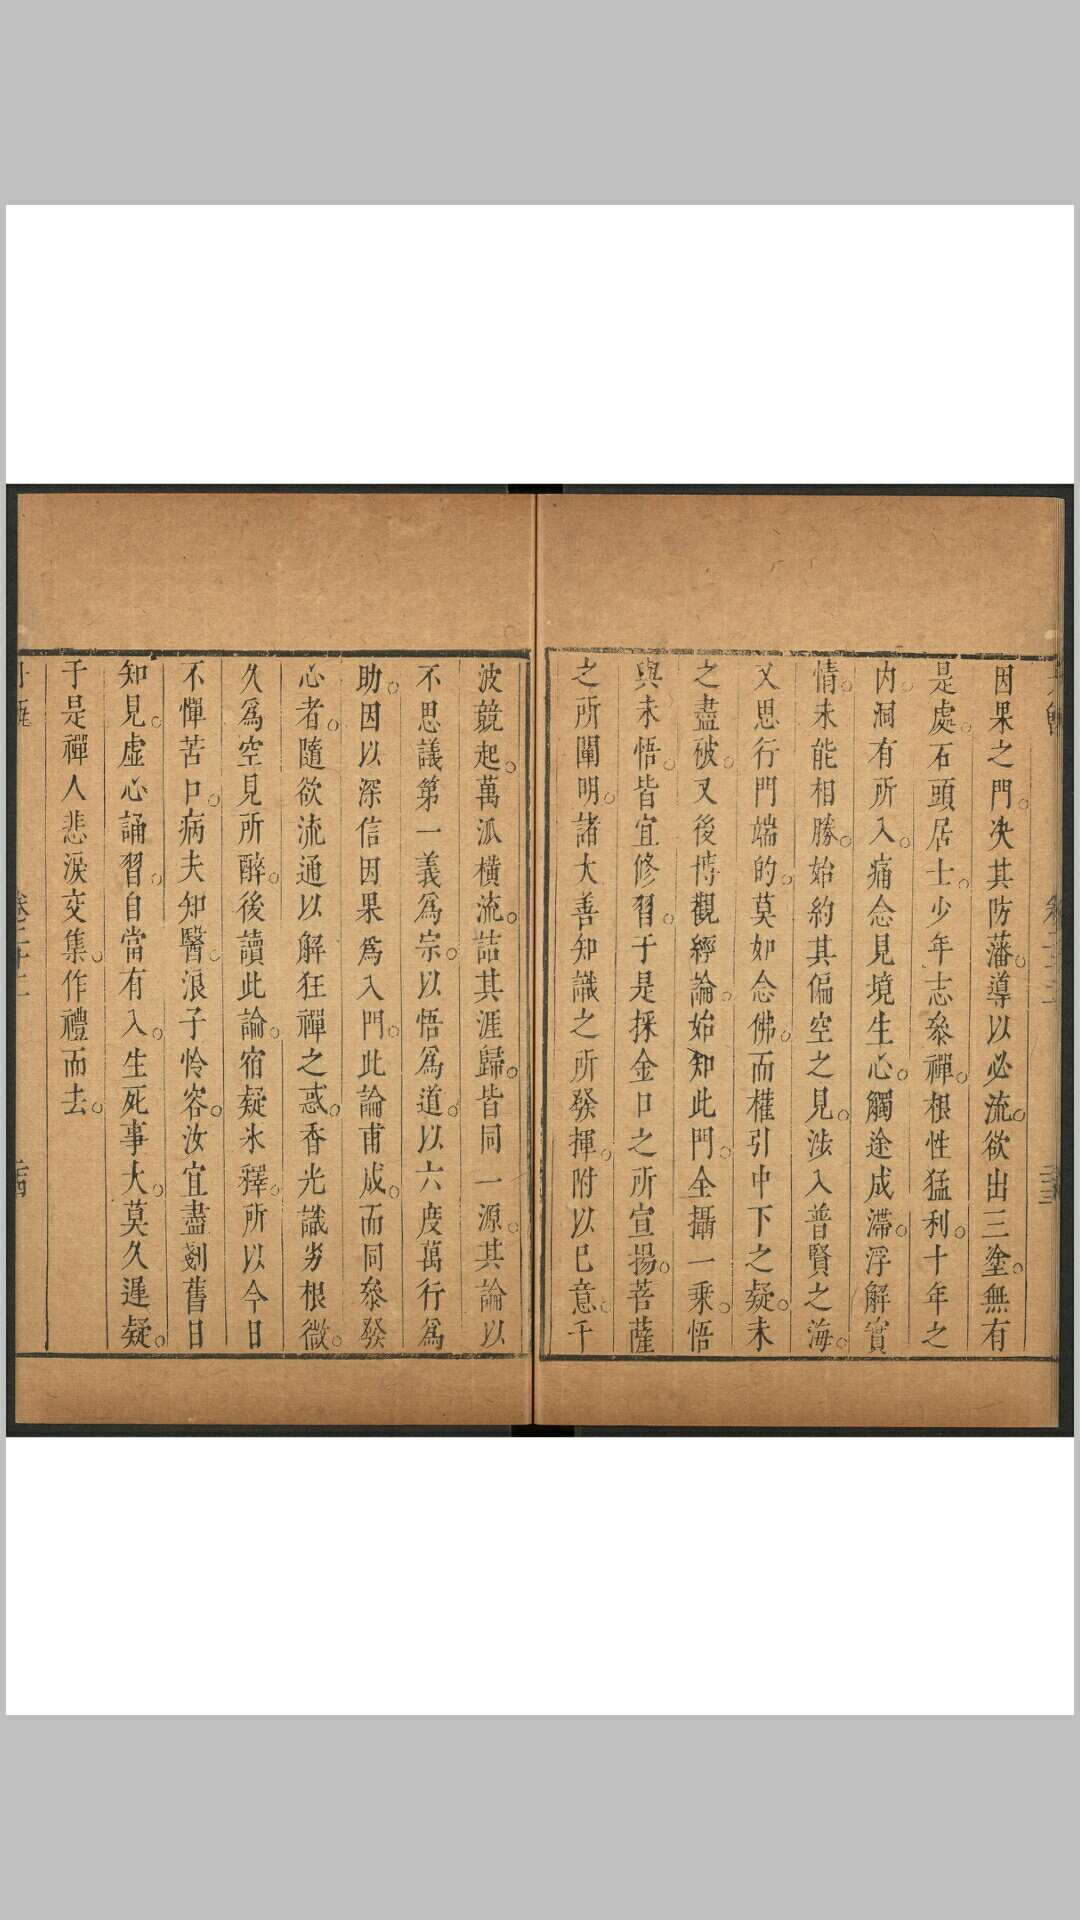 因果之門。決其防藩。導以必流。欲出三塗。無有
是處。石頭居士。少年志叅禪。根性猛利。十年之
内。洞有所入。痛念見境生心。觸途成滯。浮解實
情。未能相勝。始約其偏空之見。涉入普賢之海。
又思行門端的。莫如念佛。而權引中下之疑。未
之盡破。又後博觀經論。始知此門。全攝一乗。悟
與未悟。皆宜修習。于是採金口之所宣揚。菩薩
之所闡明。諸大善知識之所發揮。附以已意。千
波競起。萬泒橫流。詰其涯歸。皆同一源。其論以
不思議第一義爲宗。以悟爲道。以六度萬行爲
助。因以深信因果爲入門。此論甫成。而同叅發
心者。隨欲流通以解狂禪之惑。香光識劣根微。
久爲空見所醉。後讀此論。宿疑氷釋。所以今日
不憚苦口。病夫知醫。浪子怜容。汝宜盡剗舊日
知見。虛心誦習。自當有入。生死事大。莫久遲疑。
于是禪人悲淚交集。作禮而去。